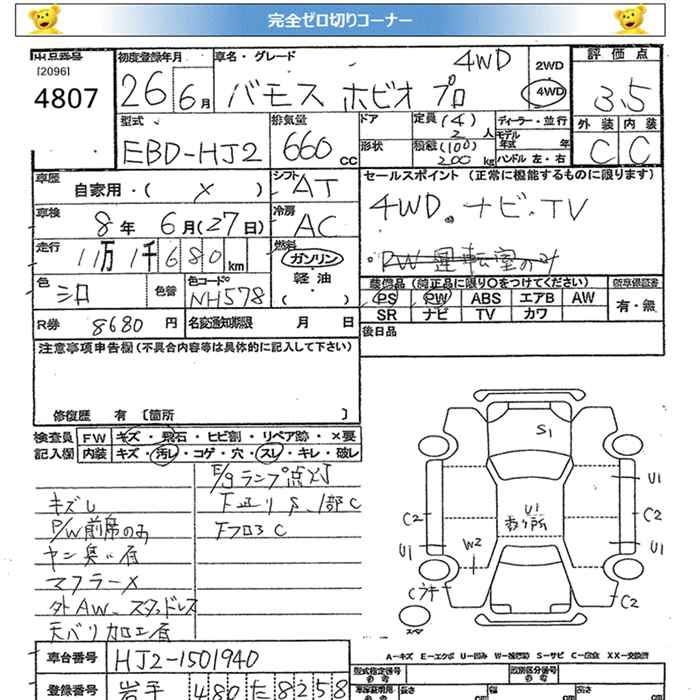 完全ゼロ切りコーナー
出品番号
[2096]
4807
初度登録年月
26 6月
車名・グレード
バモス ホビオ プロ 4WD
2WD
4WD
評価点
3.5
外装 内装
C C
型式
EBD-HJ2
排気量
660 cc
ドア
形状
定員 (4) 2 人
積載 (100) 200 kg
ディーラー・並行
モデル年式 年
ハンドル 左・右
車歴
自家用・( × )
シフト
AT
車検
8年 6月(27日)
冷房
AC
走行
11万1千680km
燃料
ガソリン
軽油
( )
色
シロ
色替
色コードNo
NH578
R券 8680円
名変通知期限 月 日
セールスポイント (正常に機能するものに限ります)
4WD。ナビ・TV
PW 運転室のみ
装備品 (純正品に限り○をつけてください)
PS PW ABS エアB AW
SR ナビ TV カワ
新車保証書
有・無
後日品
注意事項申告欄(不具合内容等は具体的に記入して下さい)
修復歴 有 [箇所 ]
検査員記入欄
FW キズ・飛石・ヒビ割・リペア跡・×要
内装 キズ・汚レ・コゲ・穴・スレ・キレ・破レ
キズレ
P/W前席のみ
マフラー×
外AW、スタッドレス
天バリ加工有
E/gランプ点灯
下廻りS、1部C
FフロアC
S1
U1
C2
U1
C2
U1
W2
C2
スペア
A=キズ E=エクボ U=凹み W=補修跡 S=サビ C=腐食 XX=交換済
車台番号
HJ2-1501940
登録番号
岩手 480 た 8258
型式指定番号
類別区分番号
長さ cm
幅 cm
高さ cm